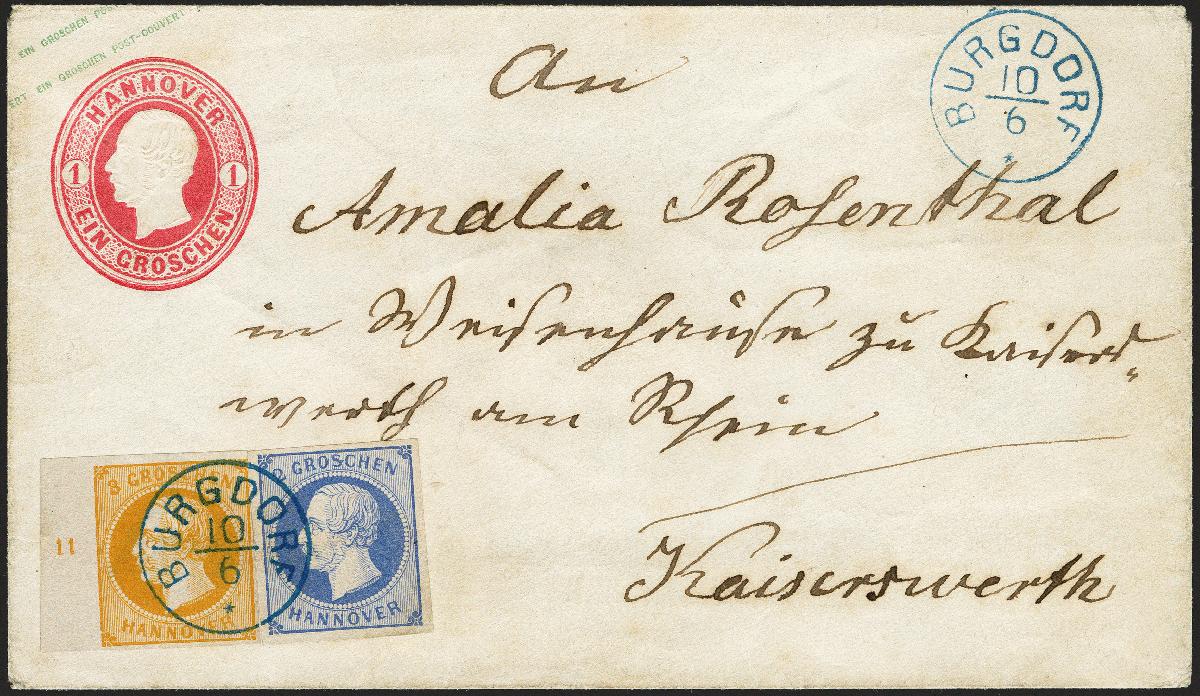 EIN GROSCHEN POST
EIN GROSCHEN POST-COUVERT
ERT EIN GROSCHEN
HANNOVER
1 1
EIN GROSCHEN
BURGDORF
10
6
An
Amalia Rosenthal
in Weisenhause zu Kaisers-
werth am Rhein
Kaiserswerth
11
8 GROSCHEN
HANNOVER
GROSCHEN
HANNOVER
BURGDORF
10
6